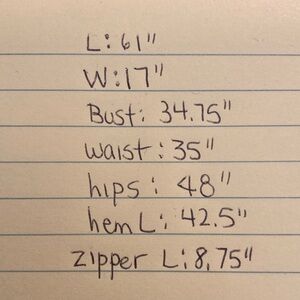 L: 61"
W: 17"
Bust: 34.75"
waist: 35"
hips: 48"
hem L: 42.5"
zipper L: 8.75"